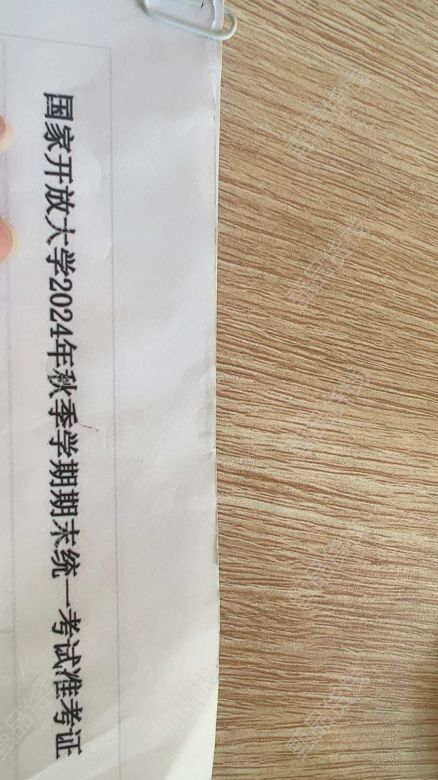 国家开放大学2024年秋季学期期末统一考试准考证